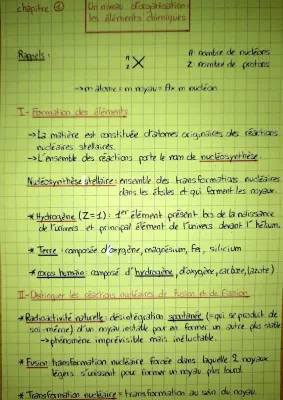 chapitre ①
Un niveau d'organisation:
les éléments chimiques
Rappels:
A
Z X
A: nombre de nucléons
Z: nombre de protons
→ m atome = m noyau = A x m nucléon
I - Formation des éléments
→ La matière est constituée d'atomes originaires des réactions
nucléaires stellaires.
→ L'ensemble des réactions porte le nom de nucléosynthèse.
Nucléosynthèse stellaire: ensemble des transformations nucléaires
dans les étoiles et qui forment les noyaux.
* Hydrogène (Z=1): 1er élément présent lors de la naissance
de l'univers et principal élément de l'univers devant l'hélium.
* Terre: composée d'oxygène, magnésium, fer, silicium
* corps humain: composé d'hydrogène, d'oxygène, carbone, (azote)
II - Distinguer les réactions nucléaires de fusion et de fission.
* Radioactivité naturelle: désintégration spontanée (= qui se produit de
soi-même) d'un noyau instable pour en former un autre plus stable
→ phénomène imprévisible mais inéluctable.
* Fusion: transformation nucléaire forcée dans laquelle 2 noyaux
légers s'unissent pour former un noyau plus lourd.
* Transformation nucléaire = transformation au sein du noyau